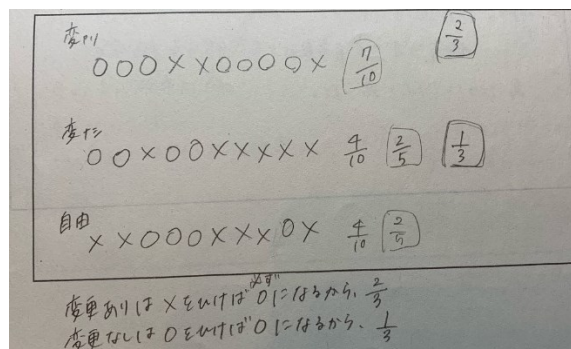 変アリ
2/3
○○○××○○○○× 7/10
変ナシ
○○×○○××××× 4/10 2/5 1/3
自由
××○○○×××○× 4/10 2/5
変更ありは×をひけば必ず○になるから、2/3
変更なしは○をひけば○になるから、1/3